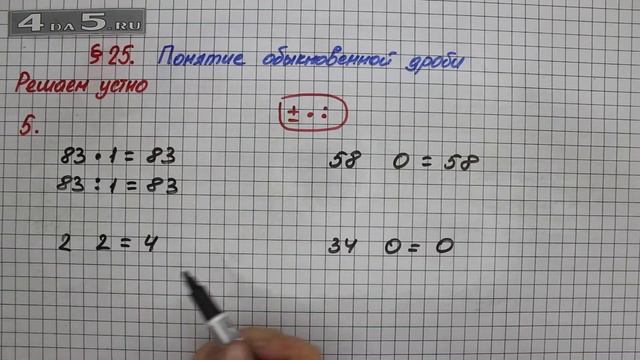 4DA5.RU
§ 25. Понятие обыкновенной дроби
Решаем устно
5.
± • :
83 • 1 = 83
58 0 = 58
83 : 1 = 83
2 2 = 4
34 0 = 0